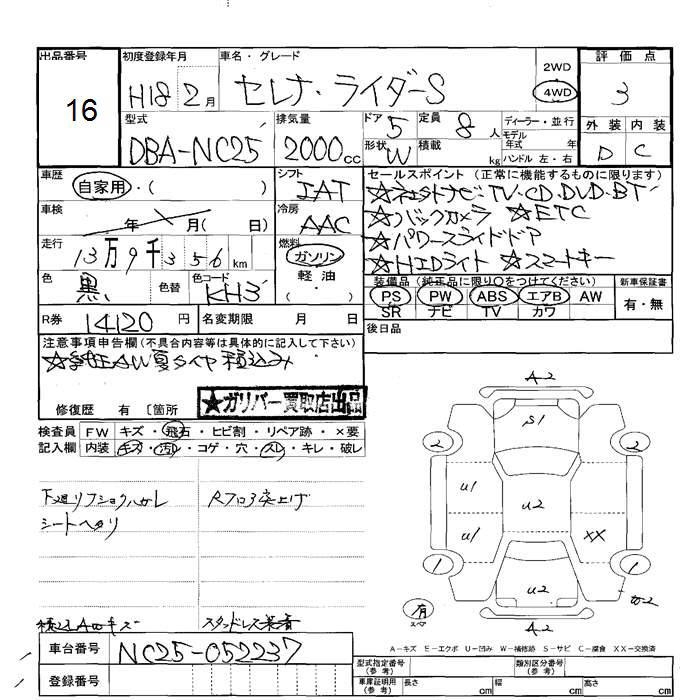 出品番号 初度登録年月 車名・グレード 評価点
16
H18 2月 セレナ・ライダーS 2WD
4WD 3
型式 排気量 ドア 定員 ディーラー・並行 外装 内装
DBA-NC25 2000cc 5 8人 モデル年式 年
形状 W 積載 kg ハンドル 左・右 D C
車歴 シフト セールスポイント (正常に機能するものに限ります)
自家用・( ) IAT ☆ TV・CD・DVD・BT
車検 冷房 ☆バックカメラ ☆ETC
年 月( 日) AAC ☆パワースライドドア
走行 燃料 ☆HIDライト ☆スマートキー
13万9千356km ガソリン
軽油
・( )
色 色替 色コード 装備品(純正品に限り○をつけてください) 新車保証書
黒 KH3 PS PW ABS エアB AW 有・無
SR ナビ TV カワ
R券 14120円 名変期限 月 日 後日品
注意事項申告欄(不具合内容等は具体的に記入して下さい)
☆純正AW夏タイヤ積込み
★ガリバー買取店出品
修復歴 有 〔箇所
検査員 FW キズ・飛石・ヒビ割・リペア跡・×要
記入欄 内装 キズ・汚れ・コゲ・穴・スレ・キレ・破レ
シートヘタリ
スタッドレス装着
車台番号 NC25-052237
登録番号
A-2
S1
2 2
U1 U2
U1 XX
1 1
U2
有
スペア
A-2
A-キズ E-エクボ U-凹み W-補修跡 S-サビ C-腐食 XX-交換済
型式指定番号(参考) 類別区分番号(参考)
車庫証明用(参考) 長さ cm 幅 cm 高さ cm